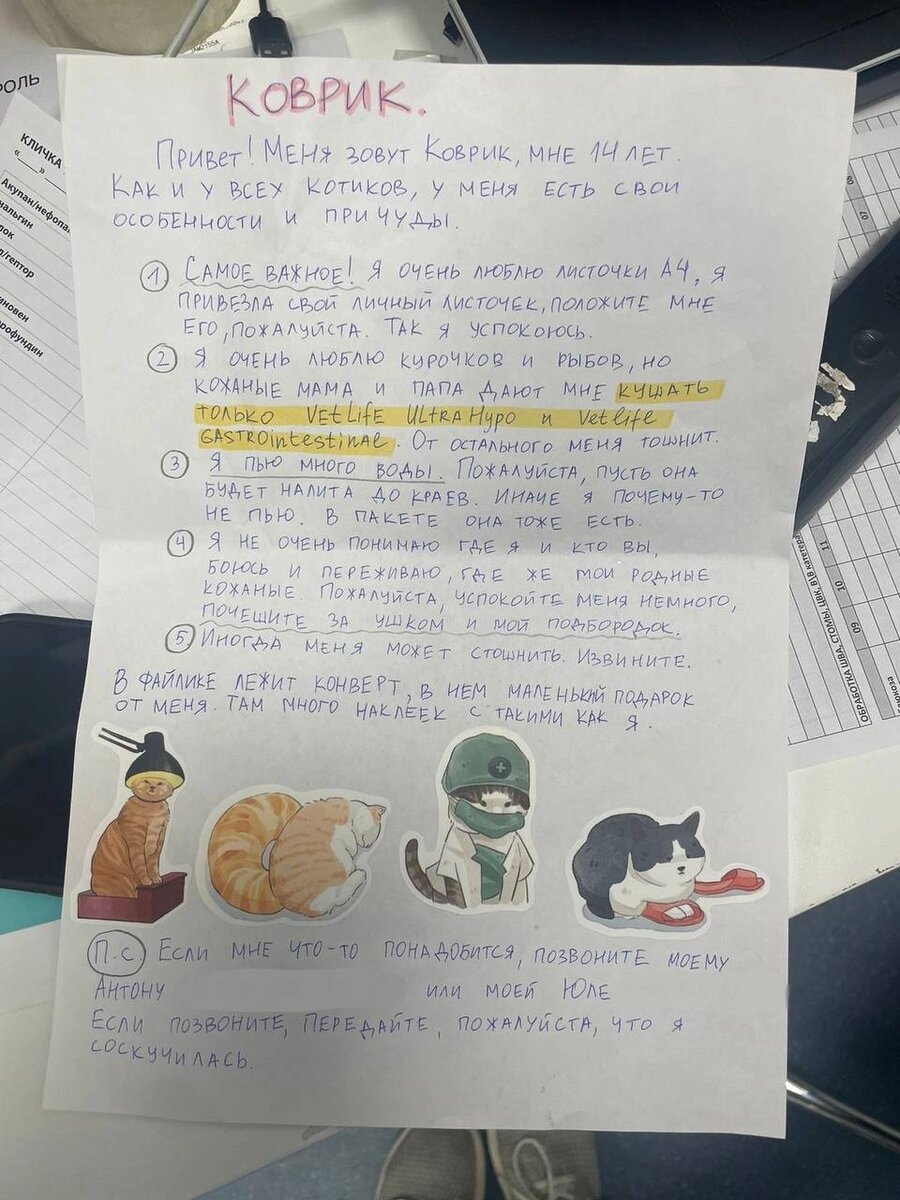 КОВРИК.
Привет! Меня зовут Коврик, мне 14 лет.
Как и у всех котиков, у меня есть свои
особенности и причуды.
1 Самое важное! Я очень люблю листочки А4, я
привезла свой личный листочек, положите мне
его, пожалуйста. Так я успокоюсь.
2 Я очень люблю курочков и рыбов, но
кожаные мама и папа дают мне кушать
только VetLife UltraHypo и Vetlife
GASTROintestinal. От остального меня тошнит.
3 Я пью много воды. Пожалуйста, пусть она
будет налита до краев. Иначе я почему-то
не пью. В пакете она тоже есть.
4 Я не очень понимаю где я и кто вы,
боюсь и переживаю, где же мои родные
кожаные. Пожалуйста, успокойте меня немного,
почешите за ушком и мой подбородок.
5 Иногда меня может стошнить. Извините.
В файлике лежит конверт, в нем маленький подарок
от меня. Там много наклеек с такими как я.
П.С Если мне что-то понадобится, позвоните моему
Антону или моей Юле
Если позвоните, передайте, пожалуйста, что я
соскучилась.
РОЛЬ
КЛИЧКА
Акупан/нефопа
нальгин
лок
л/гептор
иновен
рофундин
ОБРАБОТКА ШВА, СТОМЫ, ЦВК, В\В катетера
07
08
09
10
11